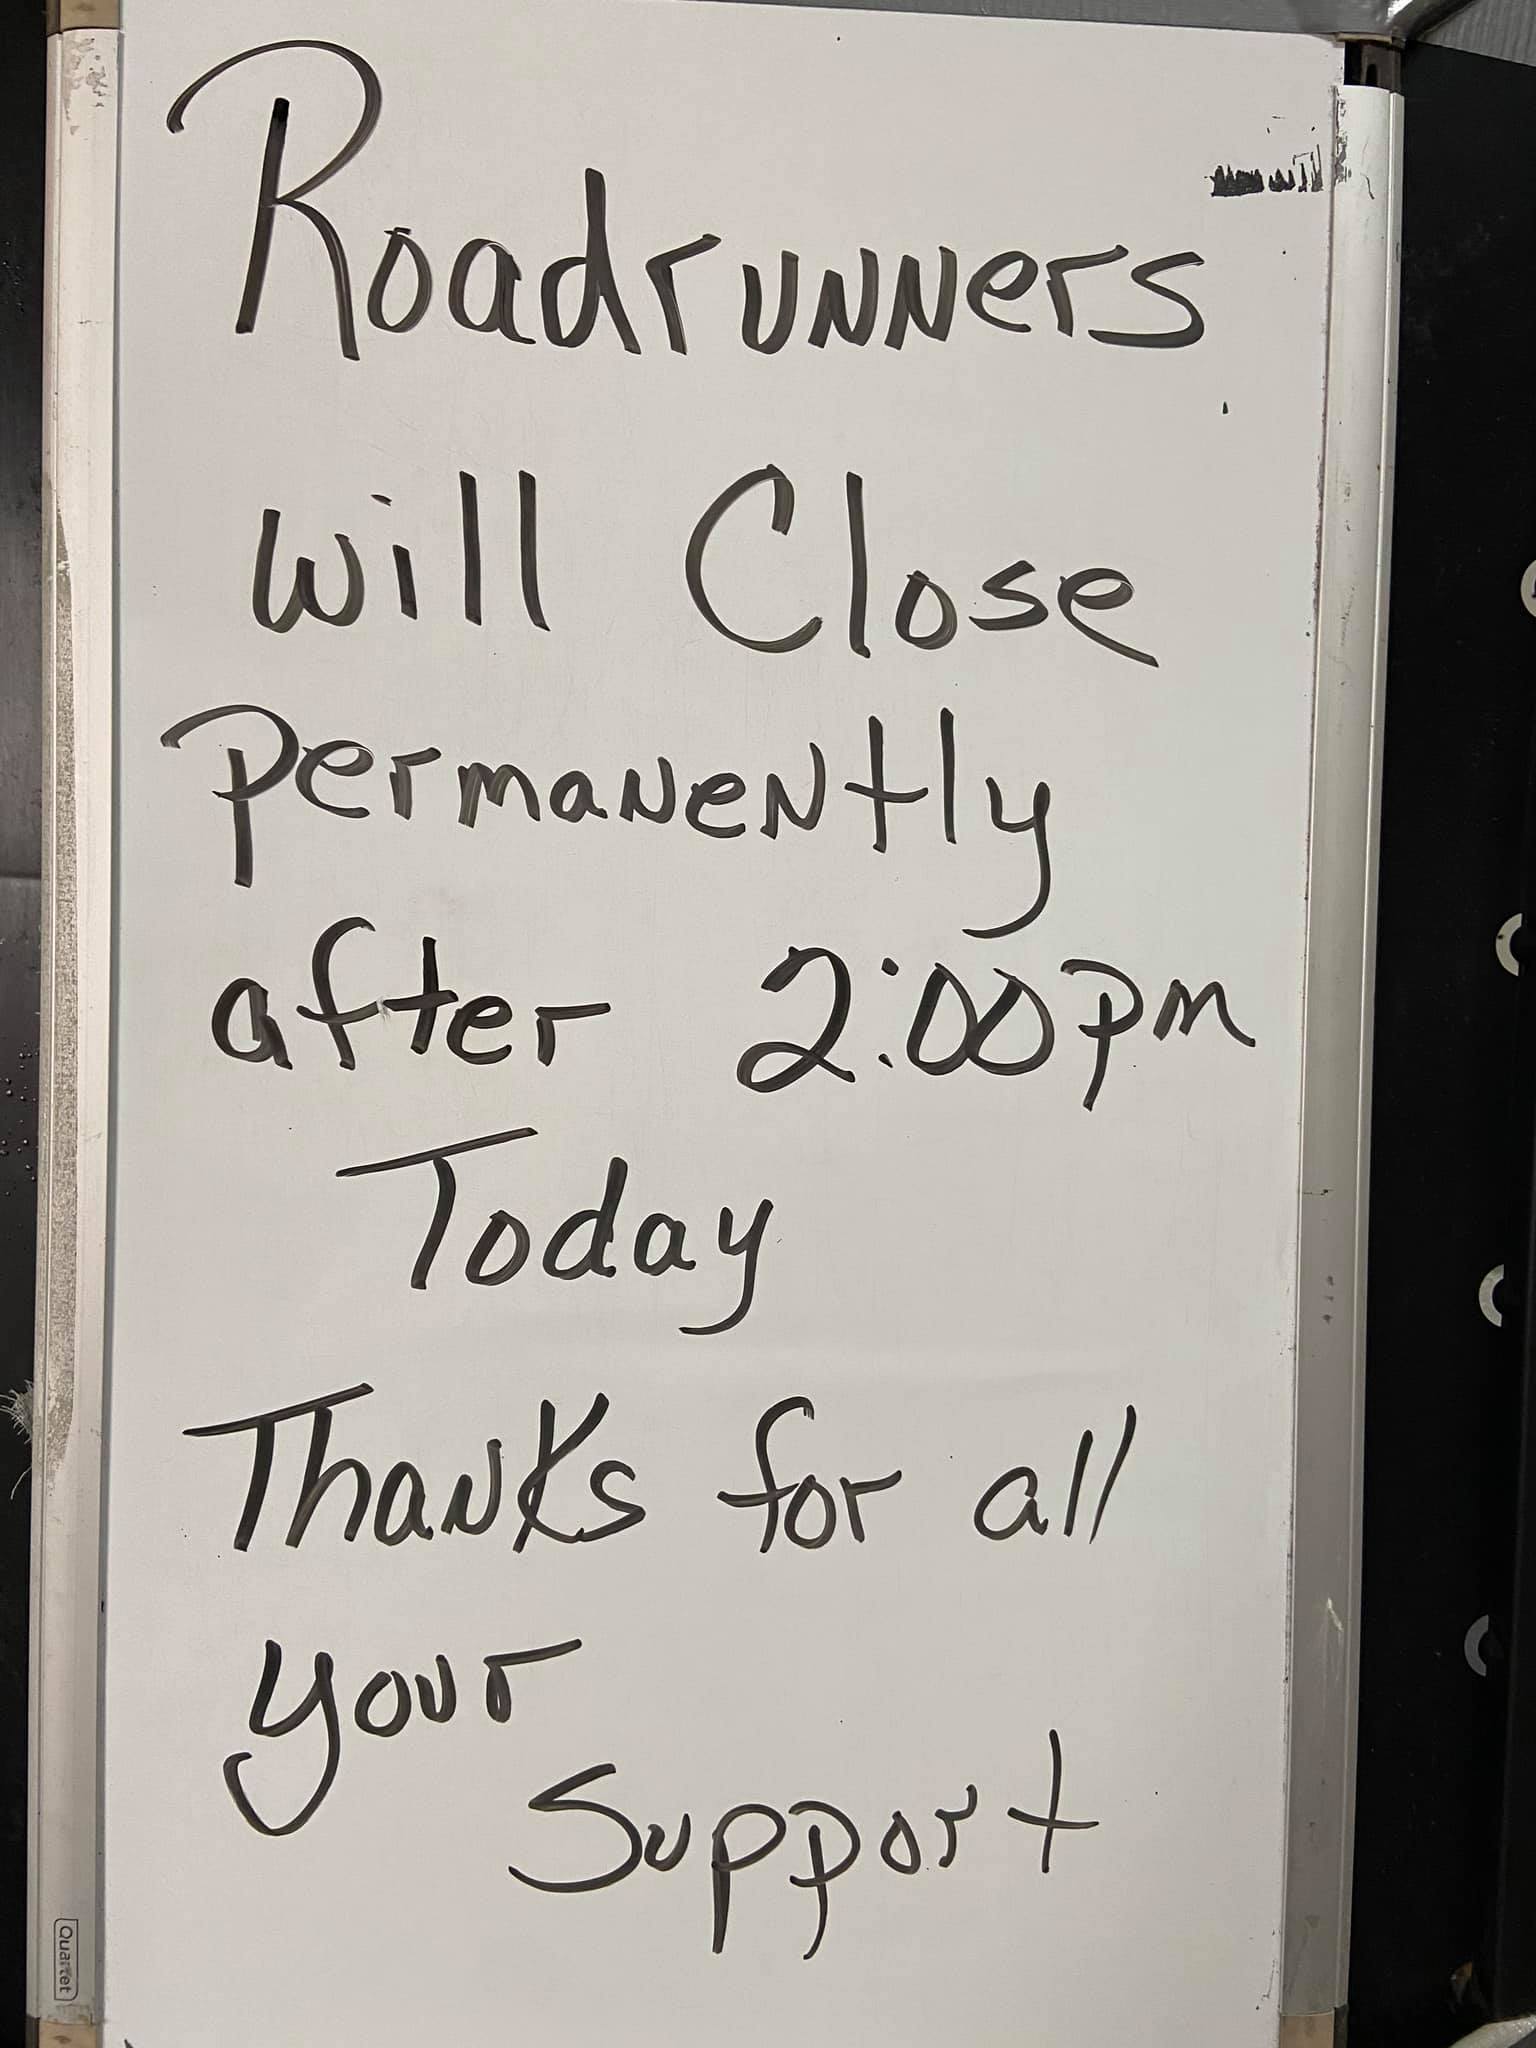 Roadrunners
will Close
permanently
after 2:00pm
Today
Thanks for all
your
Support
Quartet